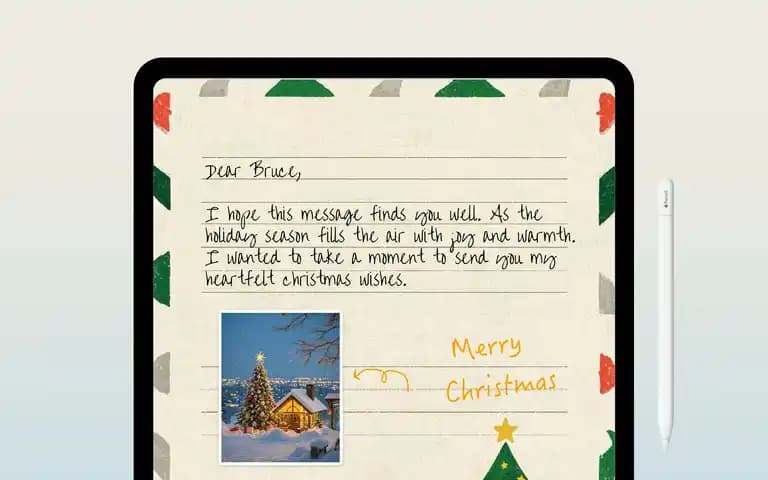 Dear Bruce,
I hope this message finds you well. As the
holiday season fills the air with joy and warmth.
I wanted to take a moment to send you my
heartfelt christmas wishes.
Merry
Christmas